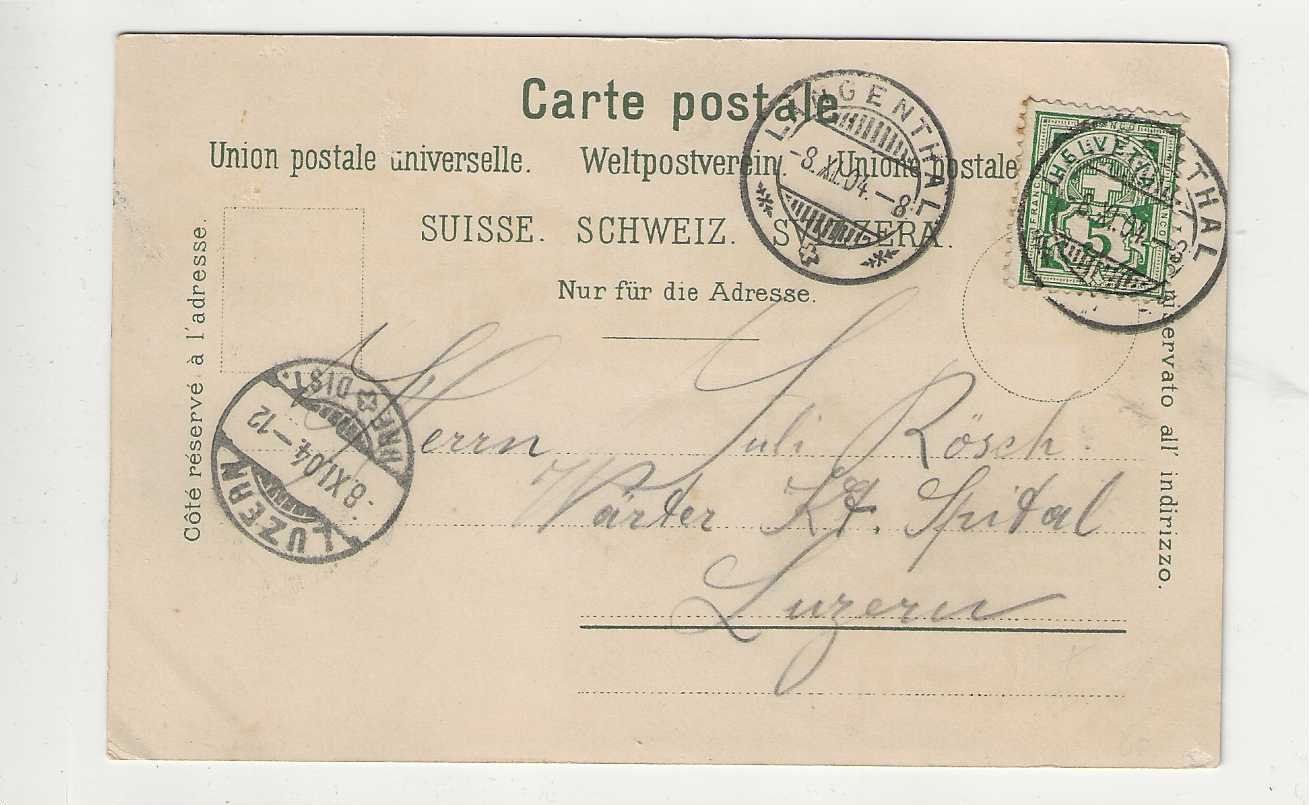 Carte postale
Union postale universelle. Weltpostverein. Unione postale
SUISSE. SCHWEIZ. SVIZZERA.
Nur für die Adresse.
Côté réservé à l'adresse.
riservato all' indirizzo.
LANGENTHAL
-8.XI.04.-8
FRANCO
HELVETIA
5
FRANCO
FRANCO
THAL
XI.04.-8
LUZERN
-8.XI.04.-12
DIST.
Herrn Juli Rösch.
Wärter Kt. Spital
Luzern